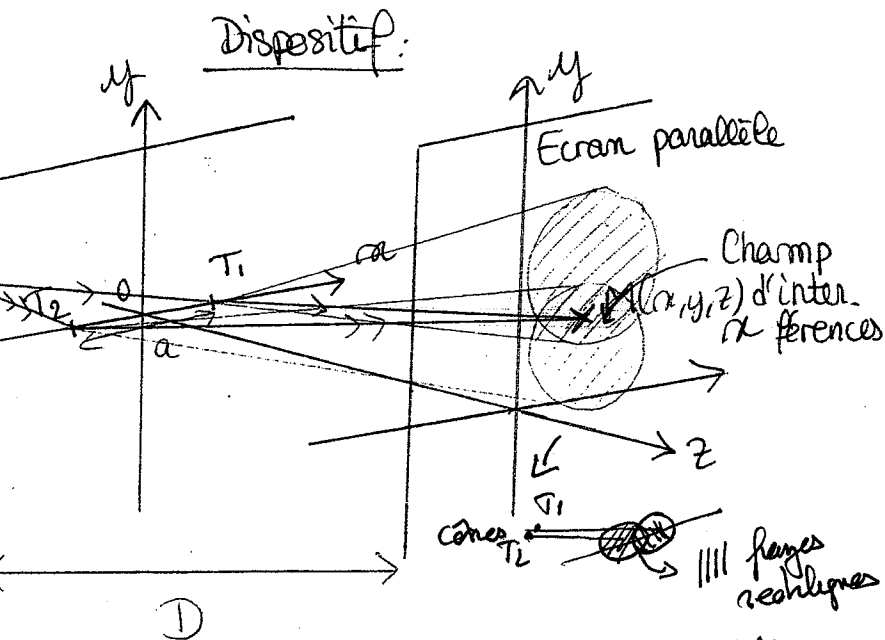 Dispositif:
y
y
Ecran parallèle
T₁
x
Champ
T₂
O
M(x,y,z) d'inter-
x
férences
a
z
T₁
cônes
T₂
franges
rectilignes
D